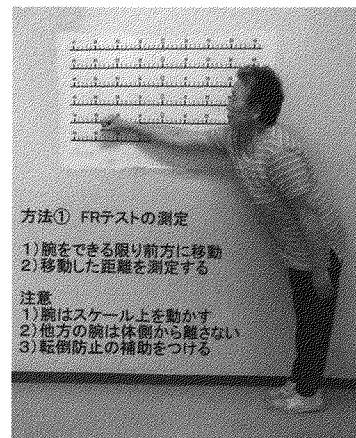 方法① FRテストの測定
1)腕をできる限り前方に移動
2)移動した距離を測定する
注意
1)腕はスケール上を動かす
2)他方の腕は体側から離さない
3)転倒防止の補助をつける